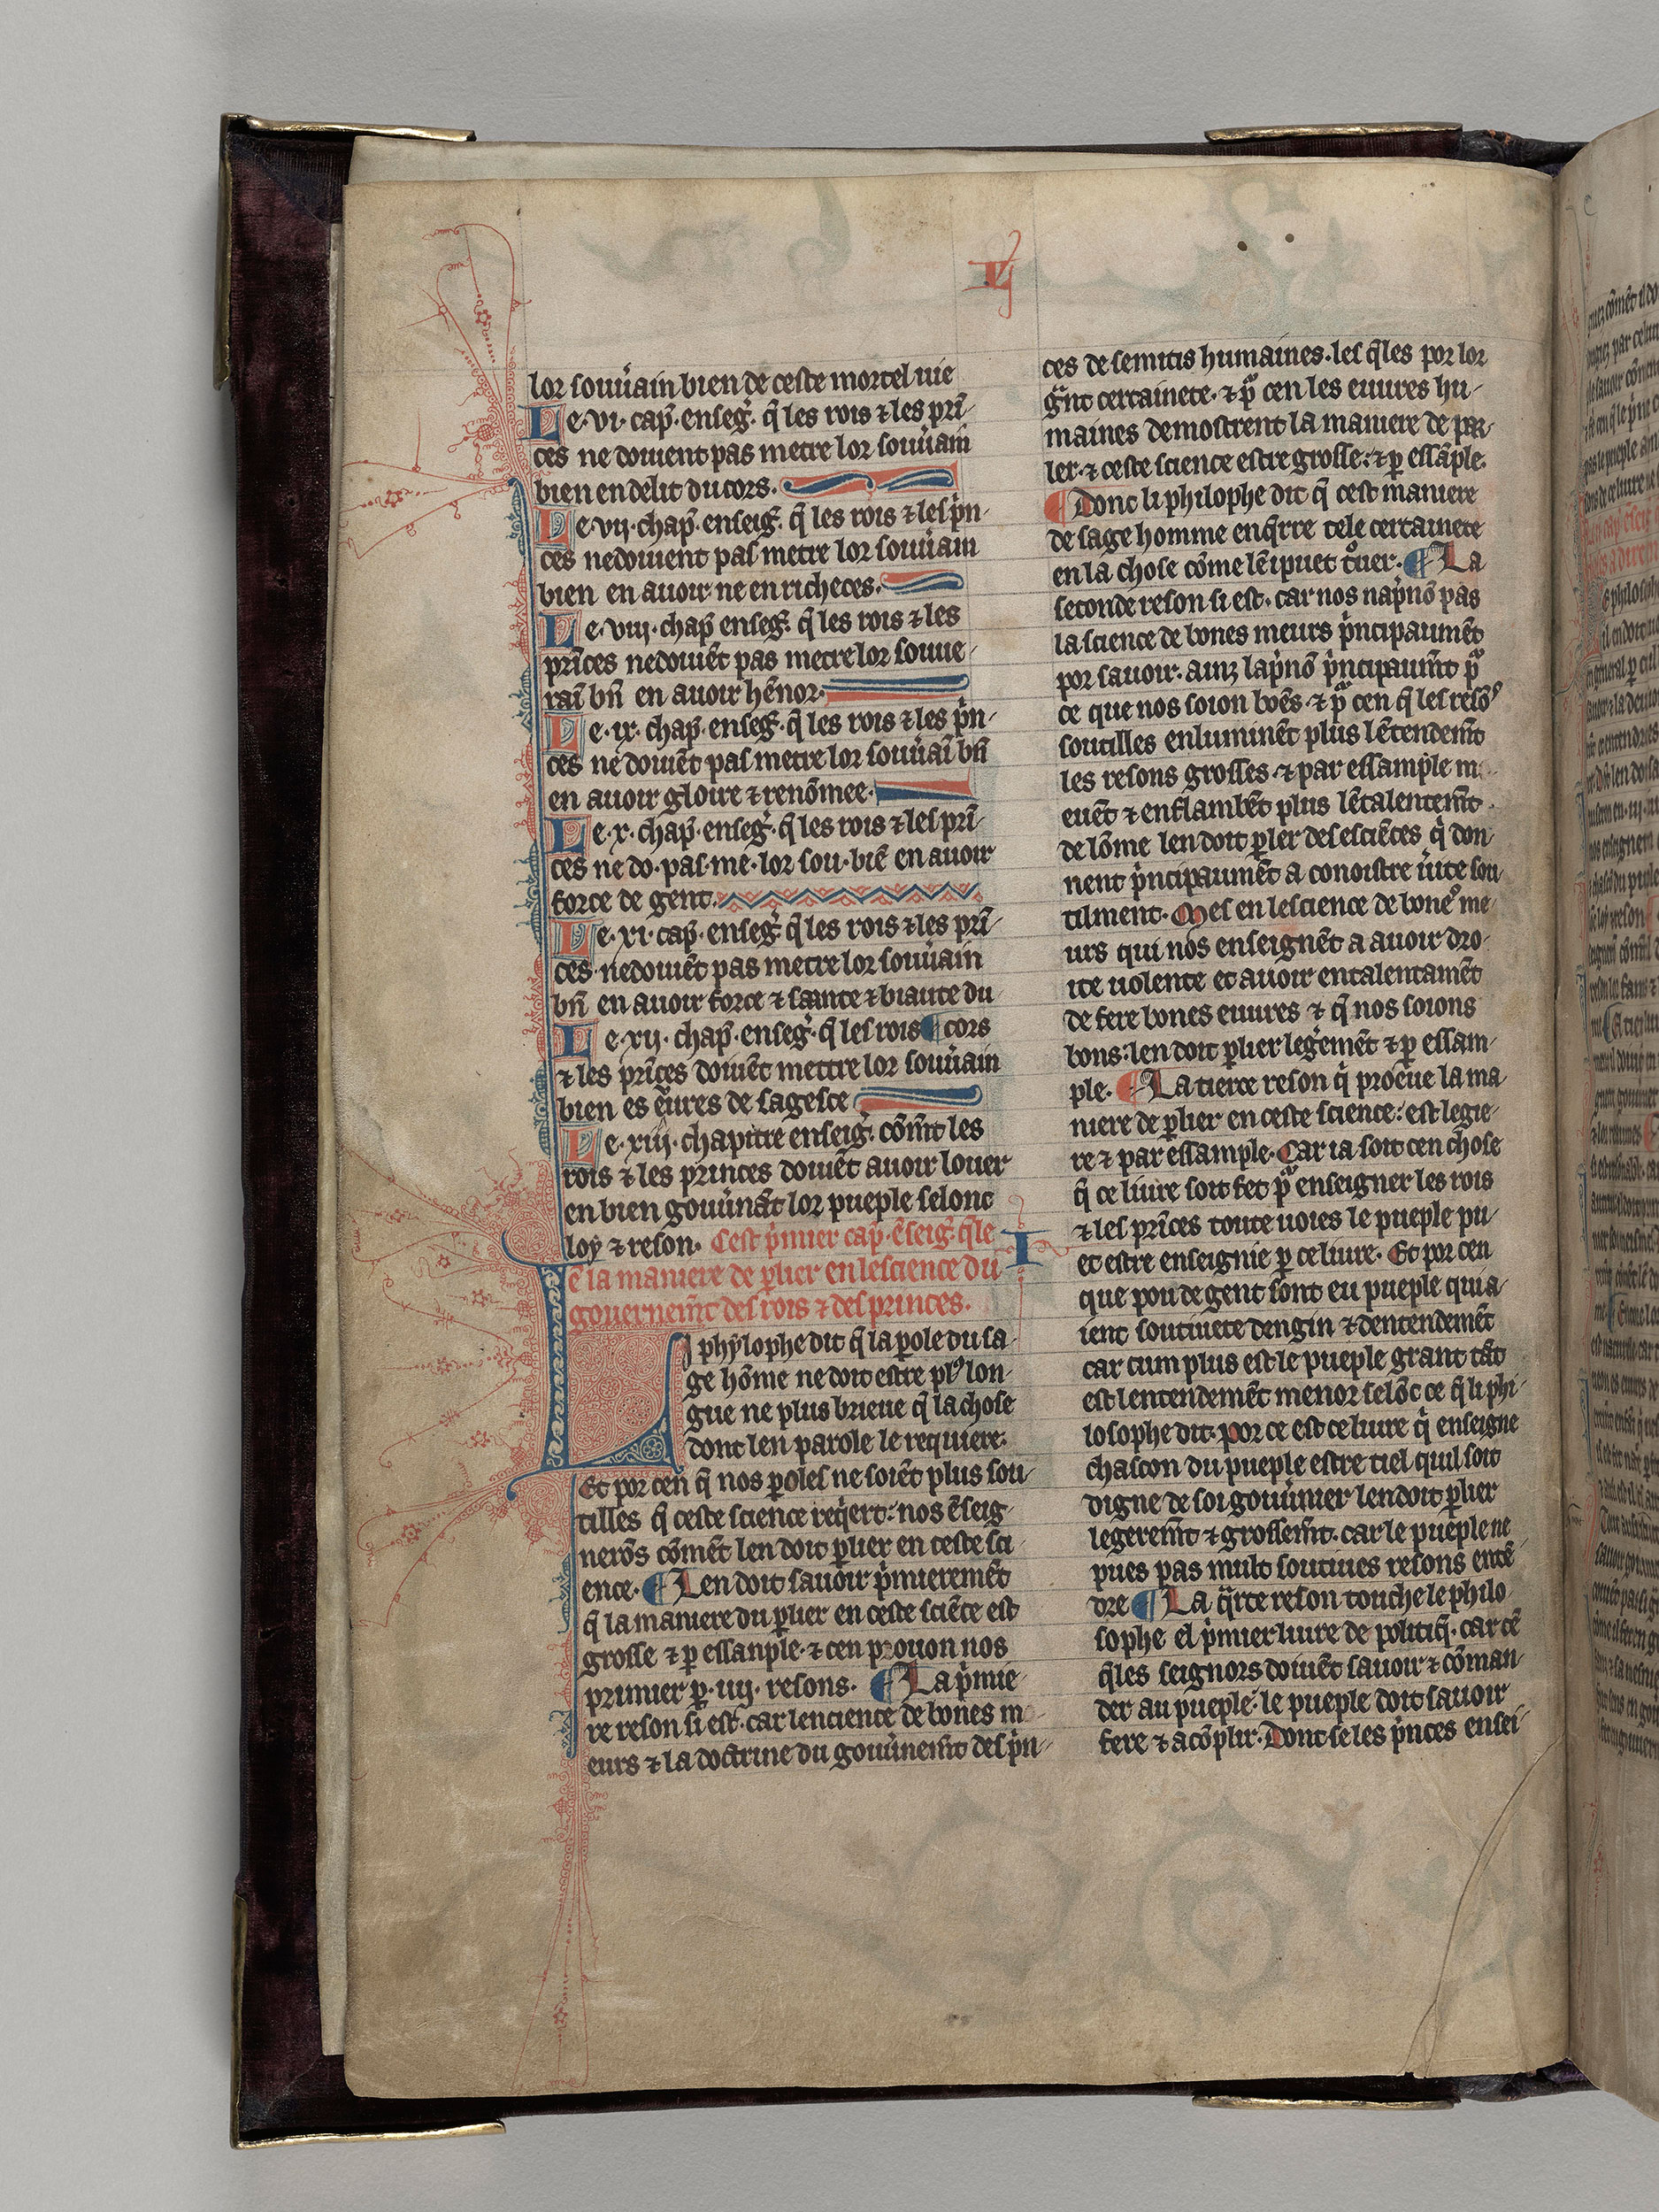 lor souu̾ain bien de ceste mortel uie
Le·vi·cap̃·enseg̾· q̃ les rois ⁊ les prĩ-
ces ne doiuent pas metre lor souu̾ain
bien en delit du cors.
Le·vij·chap̃·enseig̾· q̃ les rois ⁊ les pͥn-
ces ne doiuent pas metre lor souu̾ain
bien en auoir ne en richeces.
Le·viij·chap̃ enseg̾· q̃ les rois ⁊ les
prĩces ne doiuẽt pas metre lor souue-
raĩ bñ en auoir hẽnor.
Le·ix·chap̃·enseg̾· q̃ les rois ⁊ les pͥn-
ces ne doiuẽt pas metre lor souu̾aĩ bñ
en auoir gloire ⁊ renõmee.
Le·x·chap̃·enseg̾· q̃ les rois ⁊ les prĩ-
ces ne do·pas·me·lor sou·biẽ en auoir
force de gent.
Le·xi·cap̃·enseg̾· q̃ les rois ⁊ les prĩ-
ces·ne doiuẽt pas metre lor souu̾ain
bñ en auoir force ⁊ sante ⁊ biaute du
Le·xij·chap̃·enseg̾· q̃ les rois ¶ cors
⁊ les prĩces doiuẽt mettre lor souu̾ain
bien es eũres de sagesce
Le·xiij·chapitre enseig̾· cõm̃t les
rois ⁊ les princes doiuẽt auoir louer
en bien gouu̾nãt lor pueple selonc
loy ⁊ reson. Cest pͥmier cap̃·ẽseig̾· q̃le
ẽ la maniere de ꝑlier en lescience du
gouernem̃t des rois ⁊ des princes.
Li phylophe dit q̃ la ꝑole du sa-
ge hõme ne doit estre plꝰ lon-
gue ne plus brieue q̃ la chose
dont len parole le requiere.
Et por cen q̃ nos ꝑoles ne soiẽt plus sou-
tilles q̃ ceste science reqͥert: nos ẽseig-
nerõs cõmẽt len doit ꝑlier en ceste sci-
ence. ¶ Len doit sauoir pͥmieremẽt
q̃ la maniere du ꝑlier en ceste sciẽce est
grosse ⁊ ꝑ essanple·⁊ cen prouon nos
primier ꝑ·iiij·resons. ¶ La pͥmie-
re reson si est·car lencience de bones m
eurs ⁊ la doctrine du gouu̾nem̃t des pͥn-
ij
ces de semitis humaines·les q̃les por lor
gᷓnt certainete·⁊ pͦ cen les euures hu-
maines demostrent la maniere de par-
ler·⁊ ceste science estre grosse:⁊ ꝑ essãple.
¶ Donc li philophe dit q̃ cest maniere
de sage homme enqͥrre tele certainete
en la chose cõme lẽ i puet tͦuer. ¶ La
seconde reson si est·car nos napͥnõ pas
la science de bones meurs pͥncipaumẽt
por sauoir·ainz lapͥnõ pͥncipaum̃t pͦ
ce que nos soion boẽs·⁊ pͦ cen q̃ les resõs
soutilles enluminẽt plus lẽtendem̃t
les resons grosses·⁊ par essample m
euẽt ⁊ enflambẽt plus lẽtalentem̃t
de lõme len doit ꝑler des esciẽces qͥ don-
nent pͥncipaumẽt a conoistre u̾ite sou-
tilment. Mes en lescience de boneˢ me-
urs qui nos enseignẽt a auoir dro-
ite uolente et auoir entalentamẽt
de fere bones euures ⁊ q̃ nos soions
bons: len doit ꝑlier leg̾emẽt ⁊ ꝑ essam-
ple. ¶ La tierce reson qͥ proeue la ma-
niere de ꝑlier en ceste science: est legie-
re ⁊ par essample. Car ia soit cen chose
q̃ ce liure soit fet pͦ enseigner les rois
⁊ les prĩces toute uoies le pueple pu-
et estre enseignie ꝑ ce liure. Et por cen
que pou de gent sont eu pueple qui a-
ient soutiuete dengin ⁊ dentendemẽt
car cum plus est le pueple grant tãt
est lentendemẽt menor selõc ce q̃ li phi-
losophe dit· por ce est ce liure qͥ enseigne
chascon du pueple estre tiel quil soit
digne de soi gouu̾nier len doit ꝑlier
legerem̃t ⁊ grossem̃t. car le pueple ne
pues pas mult soutiues resons entẽ-
dre ¶ La qᷓrte reson touche le philo-
sophe el pͥmier liure de politiq̃·car cẽ
q̃les seignors doiuẽt sauoir ⁊ cõman-
der au pueple: le pueple doit sauoir
fere ⁊ acõplir. Dont se les pͥnces ensei-